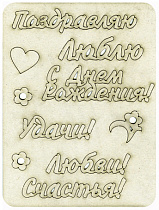 Поздравляю
Люблю
с Днем
Рождения!
Удачи!
Любви!
Счастья!